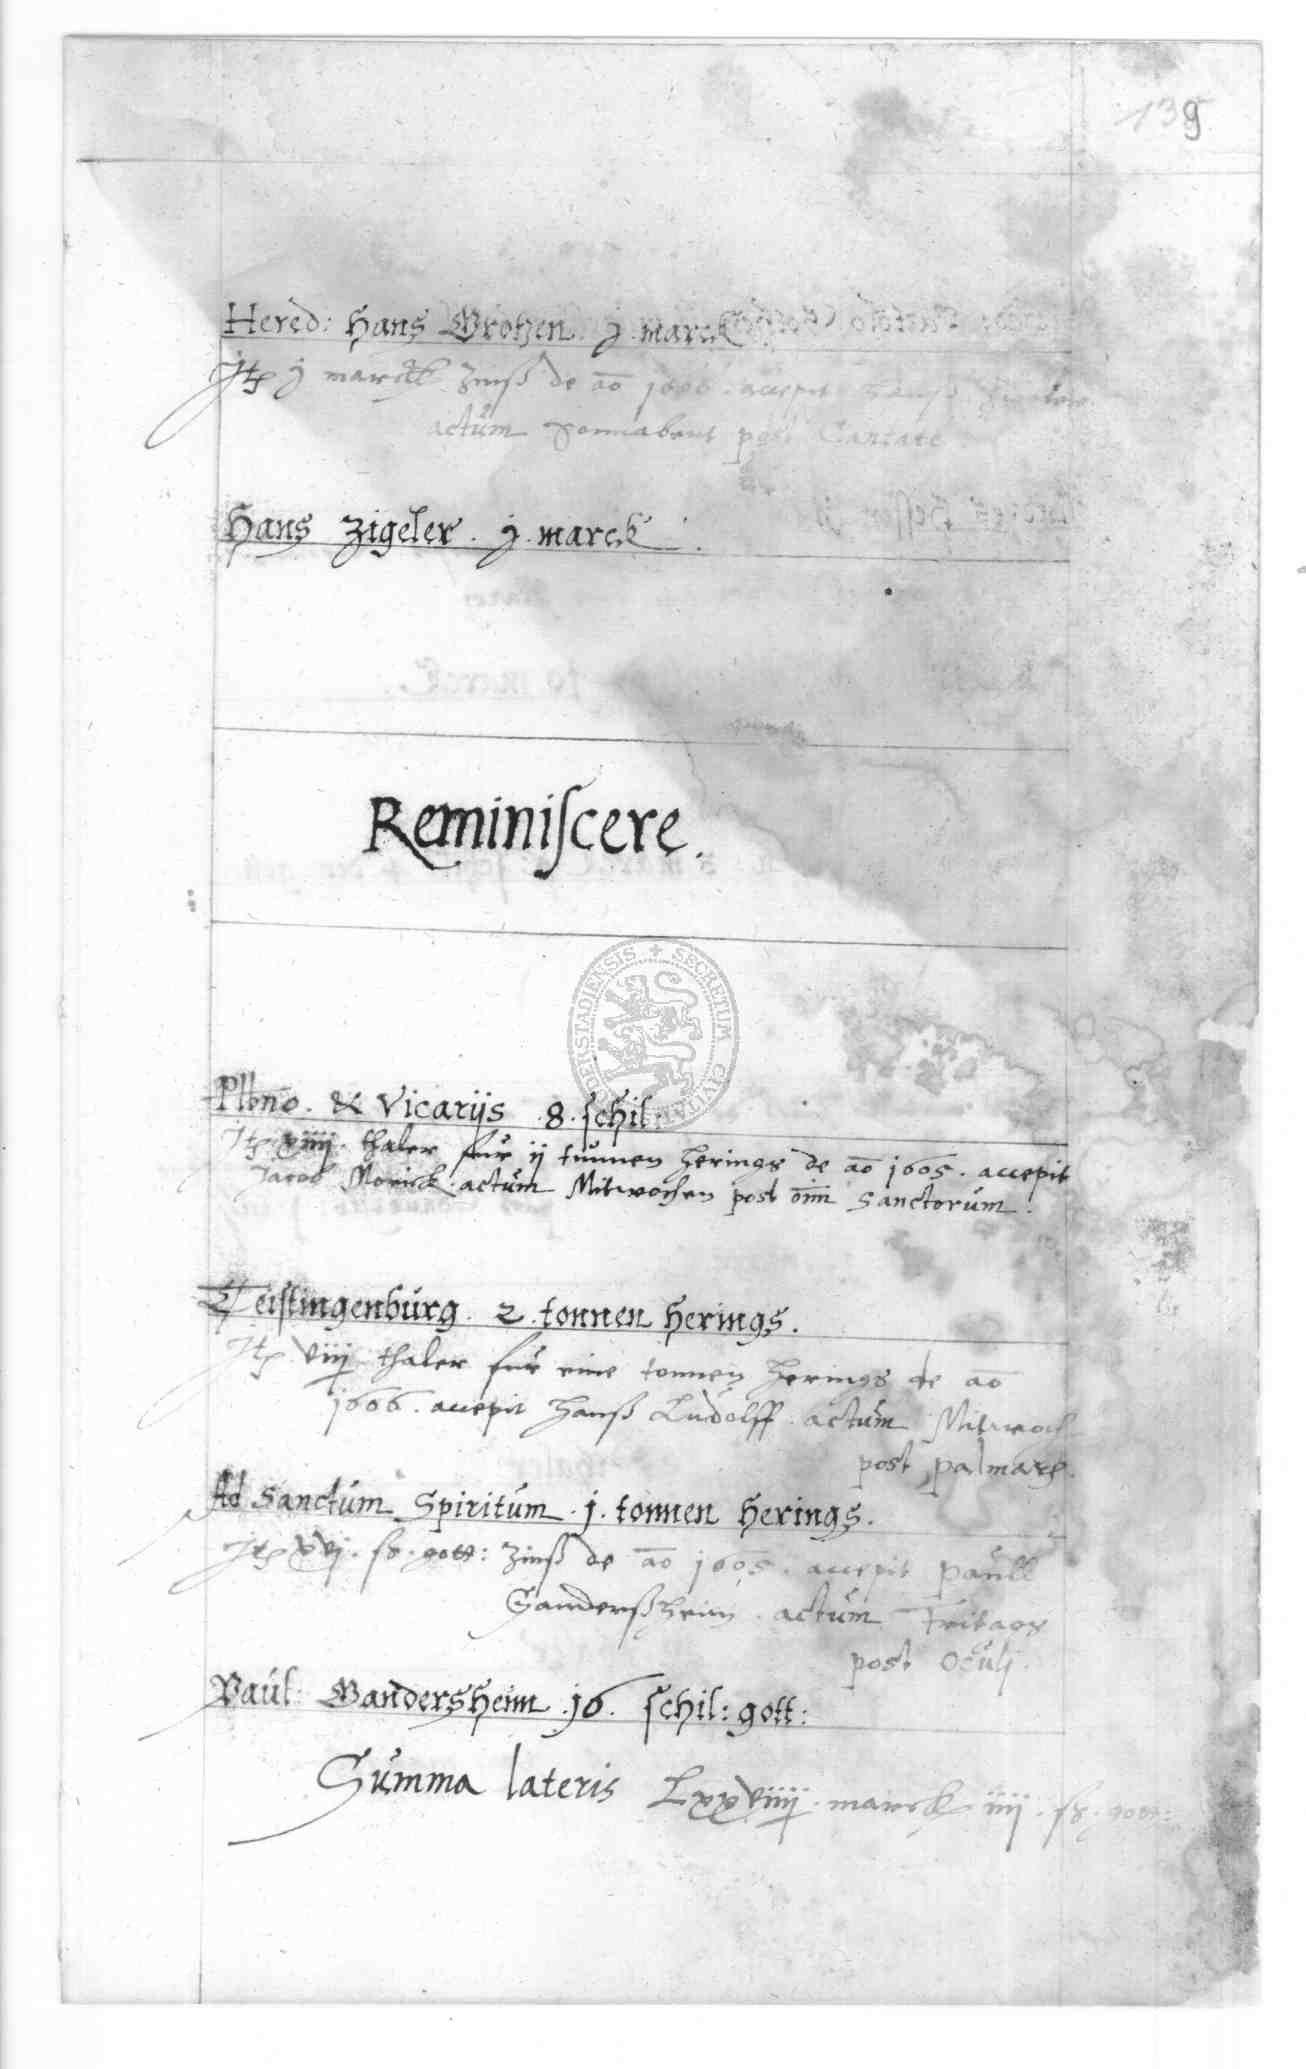 139
Hered: Hans Grotzen. j. marck
Jtz j marck Zinß de ao 1606. accepit Hanß
actum Sonnabent post Cantate
Hans Zigeler. j. marck.
Reminiſcere.
Plbno. & Vicarijs .8. ſchil:
Jtz viiij. thaler fur ij tunnen herings de ao 1605. accepit
Jacob Morick. actum Mitwochen post oīm Sanctorum.
Teiſtingenburg. 2. tonnen Herings.
Jtz viiij thaler fur eine tonnen herings de ao
1606. accepit Hanß Ludolff. actum Mitwoch
post palmarū.
Ad Sanctum Spiritum .j. tonnen Herings.
Jtz xvj. ſs. gott: Zinß de ao 1605. accepit Paull
Ganderßheim. actum Freitags
post Oculj.
Paul: Gandersheim .16. ſchil: gott:
Summa lateris Lxxviiij. marck iiij. ſs. gott:
DUDERSTADIENSIS + SECRETUM CIVITATIS